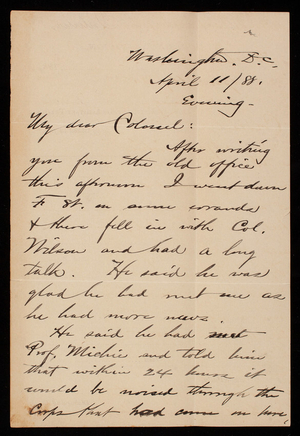 Washington, D.C.
April 11/88.
Evening.
My dear Colonel:
After writing
you from the old office
this afternoon I went down
F St. on some errands
& there fell in with Col.
Wilson and had a long
talk. He said he was
glad he had met me as
he had more news.
He said he had met
Prof. Michie and told him
that within 24 hours it
would be noised through the
Corps that had come on here,